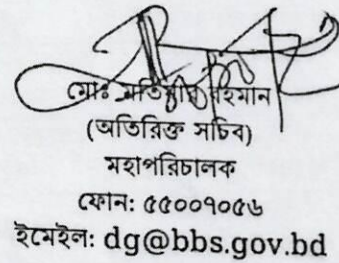 মোঃ মতিয়ার রহমান
(অতিরিক্ত সচিব)
মহাপরিচালক
ফোন: ৫৫০০৭০৫৬
ইমেইল: dg@bbs.gov.bd